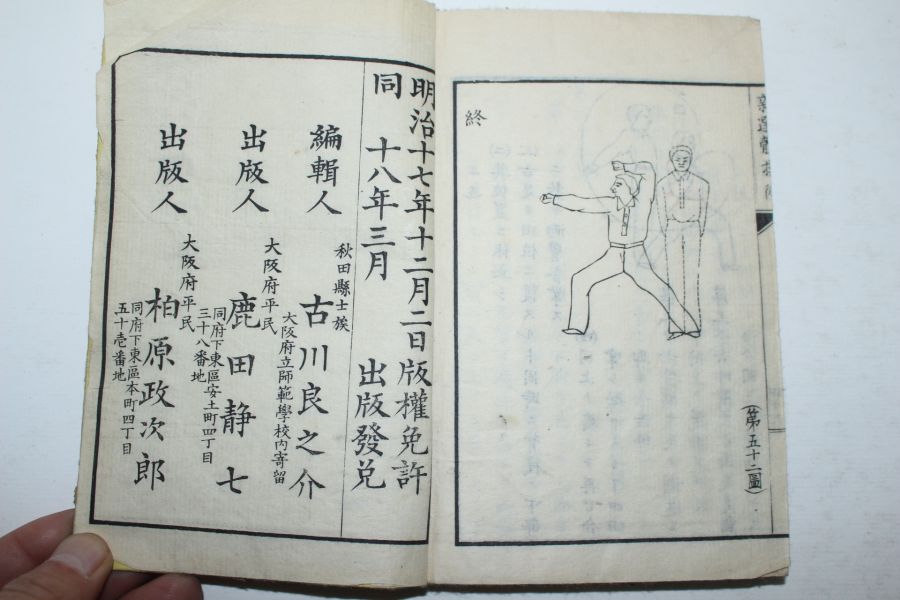 (第五十二圖)
終
明治十七年十二月二日版權免許
同 十八年三月 出版發兌
編輯人 秋田縣士族 古川良之介
大阪府立師範學校内寄留
出版人 大阪府平民 鹿田静七
同府下東區安土町四丁目
三十八番地
出版人 大阪府平民 柏原政次郎
同府下東區本町四丁目
五十壱番地